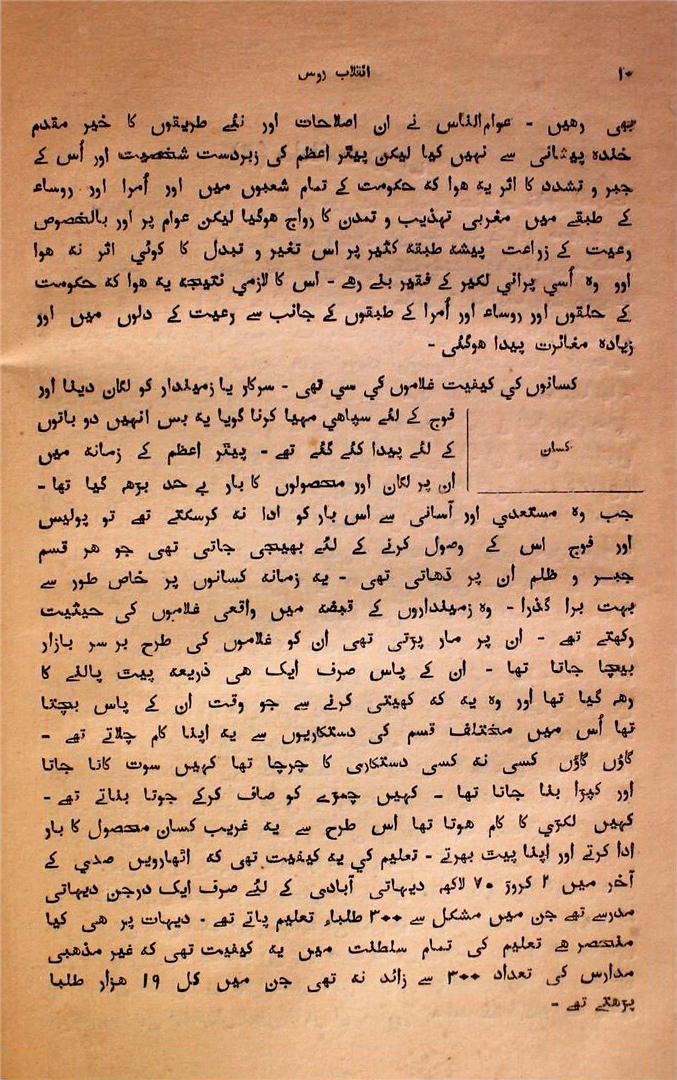 ۱۰ انقلاب روس
بھی رھیں - عوام‌الناس نے ان اصلاحات اور نئے طریقوں کا خیر مقدم
خندہ پیشانی سے نہیں کیا لیکن پیٹر اعظم کی زبردست شخصیت اور اُس کے
جبر و تشدد کا اثر یہ ھوا کہ حکومت کے تمام شعبوں میں اور اُمرا اور روساء
کے طبقے میں مغربی تہذیب و تمدن کا رواج ھوگیا لیکن عوام پر اور بالخصوص
رعیت کے زراعت پیشہ طبقہ کثیر پر اس تغیر و تبدل کا کوئی اثر نہ ھوا
اور وہ اُسی پرانی لکیر کے فقیر بنے رھے - اس کا لازمی نتیجہ یہ ھوا کہ حکومت
کے حلقوں اور روساء اور اُمرا کے طبقوں کے جانب سے رعیت کے دلوں میں اور
زیادہ مغائرت پیدا ھوگئی -
کسانوں کی کیفیت غلاموں کی سی تھی - سرکار یا زمیندار کو لگان دینا اور
کسان
فوج کے لئے سپاھی مہیا کرنا گویا یہ بس انہیں دو باتوں
کے لئے پیدا کئے گئے تھے - پیٹر اعظم کے زمانہ میں
ان پر لگان اور محصولوں کا بار بے حد بڑھ گیا تھا -
جب وہ مستعدی اور آسانی سے اس بار کو ادا نہ کرسکتے تھے تو پولیس
اور فوج اس کے وصول کرنے کے لئے بھیجی جاتی تھی جو ھر قسم
جبر و ظلم ان پر ڈھاتی تھی - یہ زمانہ کسانوں پر خاص طور سے
بہت برا گذرا - وہ زمینداروں کے قبضہ میں واقعی غلاموں کی حیثیت
رکھتے تھے - ان پر مار پڑتی تھی ان کو غلاموں کی طرح بر سر بازار
بیچا جاتا تھا - ان کے پاس صرف ایک ھی ذریعہ پیٹ پالنے کا
رہ گیا تھا اور وہ یہ کہ کھیتی کرنے سے جو وقت ان کے پاس بچتا
تھا اُس میں مختلف قسم کی دستکاریوں سے یہ اپنا کام چلاتے تھے -
گاؤں گاؤں کسی نہ کسی دستکاری کا چرچا تھا کہیں سوت کاتا جاتا
اور کپڑا بنا جاتا تھا - کہیں چمڑے کو صاف کرکے جوتا بناتے تھے -
کہیں لکڑی کا کام ھوتا تھا اس طرح سے یہ غریب کسان محصول کا بار
ادا کرتے اور اپنا پیٹ بھرتے - تعلیم کی یہ کیفیت تھی کہ اٹھارویں صدی کے
آخر میں ۲ کروڑ ۷۰ لاکھ دیہاتی آبادی کے لئے صرف ایک درجن دیہاتی
مدرسے تھے جن میں مشکل سے ۳۰۰ طلباء تعلیم پاتے تھے - دیہات پر ھی کیا
منحصر ھے تعلیم کی تمام سلطنت میں یہ کیفیت تھی کہ غیر مذھبی
مدارس کی تعداد ۳۰۰ سے زائد نہ تھی جن میں کل ۱۹ ھزار طلبا
پڑھتے تھے -